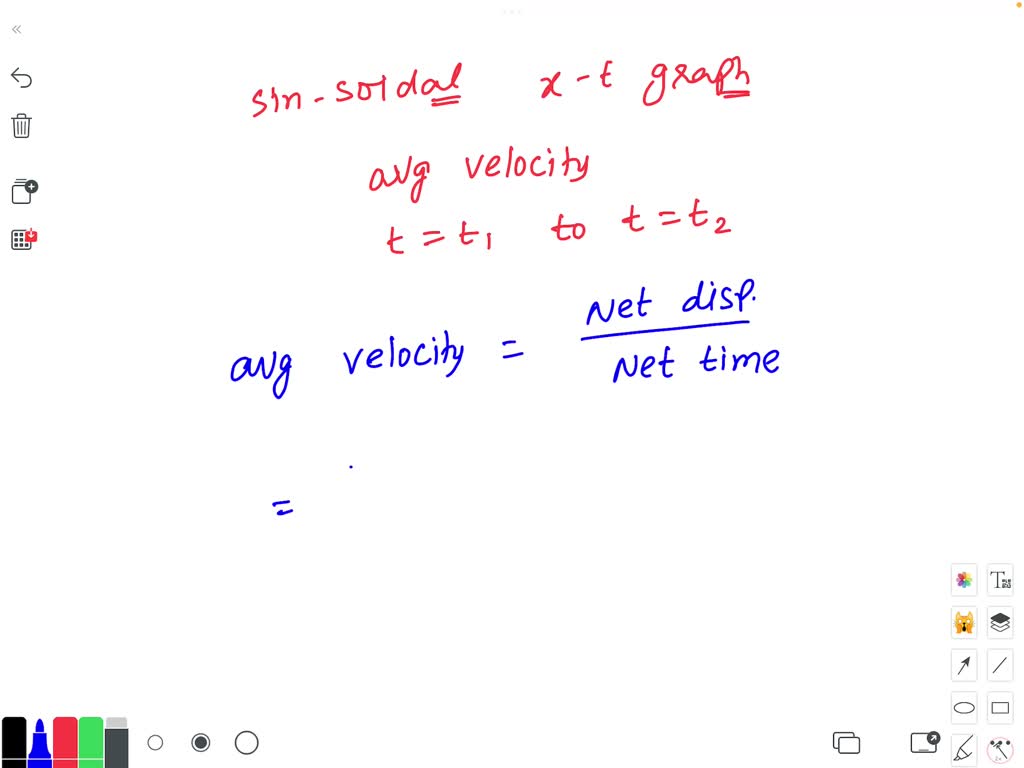 sin-soidal x-t graph
avg velocity
t = t1 to t = t2
avg velocity = Net disp. / Net time
=